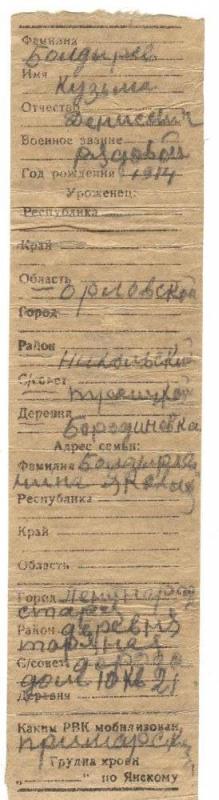 Фамилия
Болдырев
Имя
Кузьма
Отчество
Денисович
Военное звание
рядовой
Год рождения 1914
Уроженец:
Республика
Край
Область
Орловской
Город
Район
Никольский
С/совет
Деревня
Бородиневка
Адрес семьи:
Фамилия Болдырева
Республика
Край
Область
Город Ленинград
старая
Район деревня
С/совет дорога
дом 10 кв 21
Деревня
Каким РВК мобилизован
приморск
Группа крови
„ " по Янскому